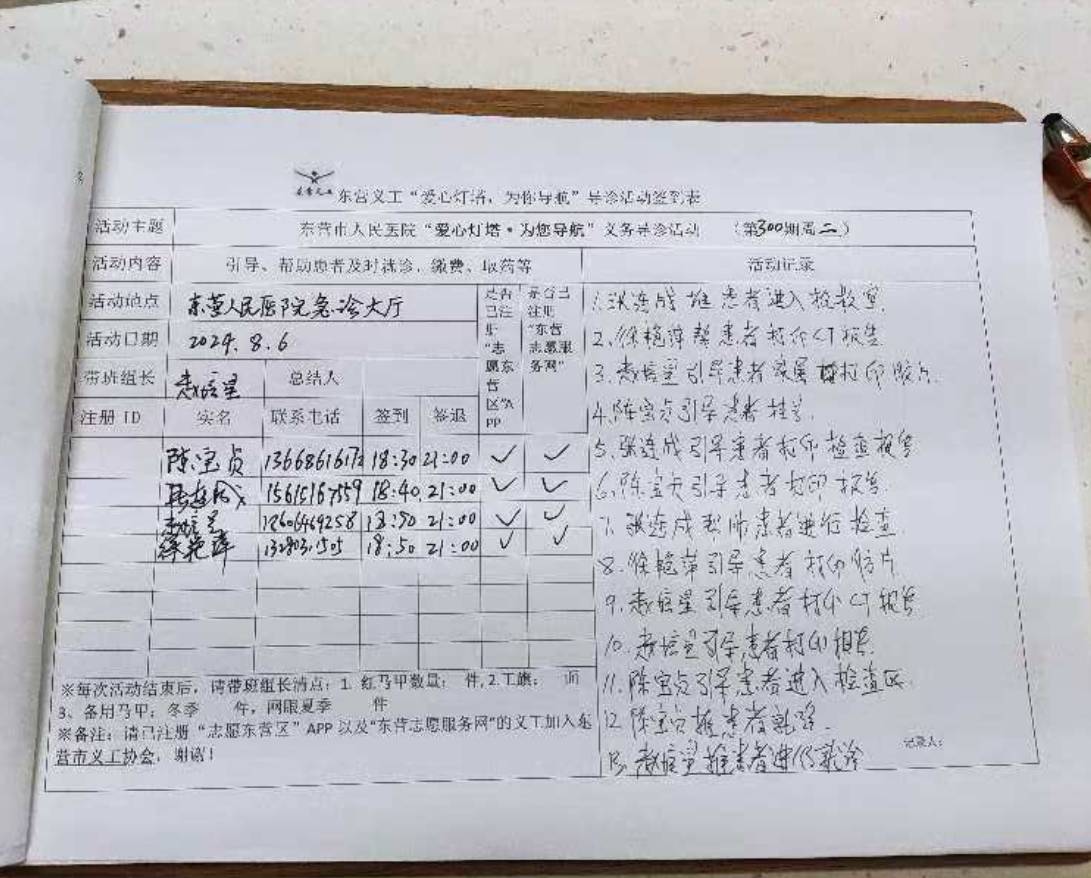 东营义工
东营义工“爱心灯塔，为你导航”导诊活动签到表
活动主题 东营市人民医院“爱心灯塔·为您导航”义务导诊活动 （第300期周二）
活动内容 引导、帮助患者及时就诊、缴费、取药等 活动记录
活动地点 东营人民医院急诊大厅
是否已注册“志愿东营区”APP
是否已注册“东营志愿服务网”
活动日期 2024.8.6
带班组长 赵培星 总结人
注册 ID 实名 联系电话 签到 签退
陈宝贞 18:30 21:00 ✓ ✓
张连成 15615167559 18:40 21:00 ✓ ✓
赵培星 21:00 ✓ ✓
徐艳萍 18:50 21:00 ✓ ✓
※每次活动结束后，请带班组长清点：1. 红马甲数量： 件，2.工旗： 面
3、备用马甲：冬季 件，网眼夏季 件
※备注：请已注册“志愿东营区”APP 以及“东营志愿服务网”的义工加入东
营市义工协会，谢谢！
1.张连成推患者进入抢救室
2.徐艳萍帮患者打印CT报告
3.赵培星引导患者家属打印胶片
4.陈宝贞引导患者挂号
5.张连成引导患者打印检查报告
6.陈宝贞引导患者打印报告
7.张连成患者进行检查
8.徐艳萍引导患者打印胶片
9.赵培星引导患者打印CT报告
10.赵培星引导患者打印报告
11.陈宝贞引导患者进入检查区
12.陈宝贞推患者就诊
13.赵培星推患者进行就诊
记录人：